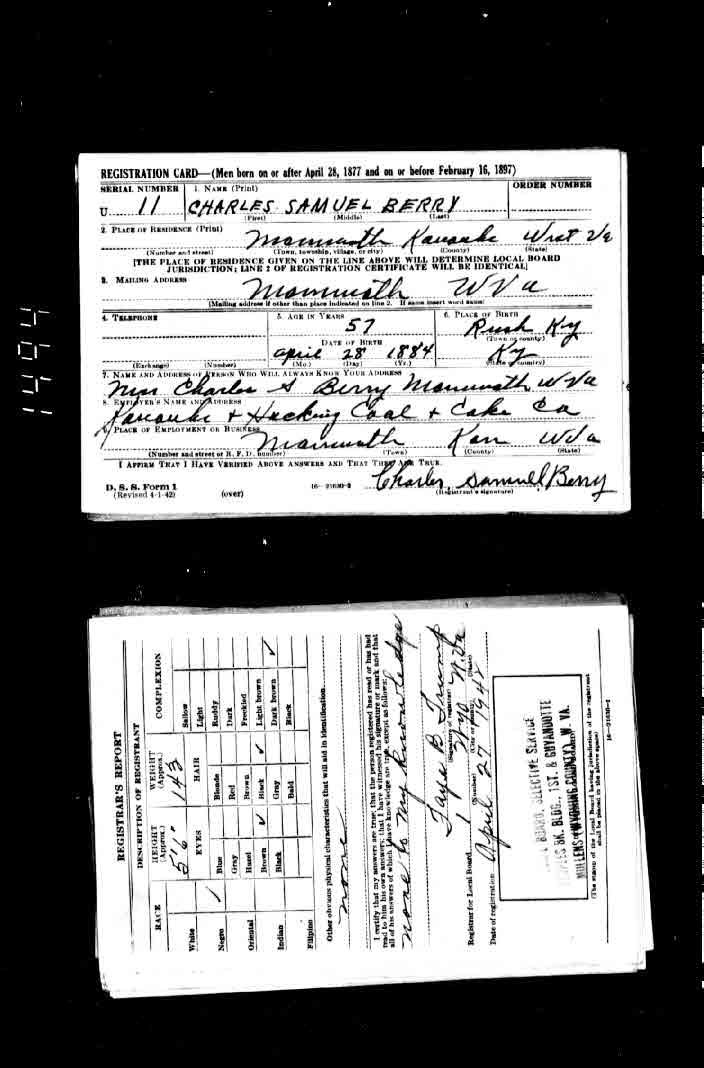 REGISTRATION CARD—(Men born on or after April 28, 1877 and on or before February 16, 1897)
SERIAL NUMBER 1. NAME (Print) ORDER NUMBER
U 11 CHARLES SAMUEL BERRY
(First) (Middle) (Last)
2. PLACE OF RESIDENCE (Print)
Mammoth Kanawha West Va
(Number and street) (Town, township, village, or city) (County) (State)
[THE PLACE OF RESIDENCE GIVEN ON THE LINE ABOVE WILL DETERMINE LOCAL BOARD
JURISDICTION; LINE 2 OF REGISTRATION CERTIFICATE WILL BE IDENTICAL]
3. MAILING ADDRESS
Mammoth W Va
[Mailing address if other than place indicated on line 2. If same insert word same]
4. TELEPHONE 5. AGE IN YEARS 6. PLACE OF BIRTH
57 Rush Ky
DATE OF BIRTH (Town or county)
April 28 1884 Ky
(Exchange) (Number) (Mo.) (Day) (Yr.) (State or country)
7. NAME AND ADDRESS OF PERSON WHO WILL ALWAYS KNOW YOUR ADDRESS
Mrs Charles S Berry Mammoth, W Va
8. EMPLOYER'S NAME AND ADDRESS
Kanawha & Hocking Coal & Coke Co
9. PLACE OF EMPLOYMENT OR BUSINESS
Mammoth Kan W Va
(Number and street or R. F. D. number) (Town) (County) (State)
I AFFIRM THAT I HAVE VERIFIED ABOVE ANSWERS AND THAT THEY ARE TRUE.
D. S. S. Form 1
(Revised 4-1-42) (over) 16—21630-2 Charles Samuel Berry
(Registrant's signature)
REGISTRAR'S REPORT
DESCRIPTION OF REGISTRANT
RACE HEIGHT (Approx.) WEIGHT (Approx.) COMPLEXION
5' 6" 143
EYES HAIR
White ✓ Blue Blonde Sallow
Light
Negro Gray Red Ruddy
Dark
Oriental Hazel Brown Freckled
Brown ✓ Black ✓ Light brown
Indian Black Gray Dark brown ✓
Filipino Bald Black
Other obvious physical characteristics that will aid in identification.
none
I certify that my answers are true; that the person registered has read or has had
read to him his own answers; that I have witnessed his signature or mark and that
all of his answers of which I have knowledge are true, except as follows:
none to my knowledge
(Signature of registrar)
Registrar for Local Board
(Number) (City or county) (State)
Date of registration April 27 1942
LOCAL BOARD, SELECTIVE SERVICE
BK. BLDG., 1ST. & GUYANDOTTE
MULLENS (WYOMING COUNTY), W. VA.
(The stamp of the Local Board having jurisdiction of the registrant
shall be placed in the above space)
16—21630-2